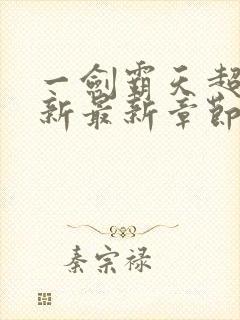 一剑霸天超
新最新章节
秦宗禄